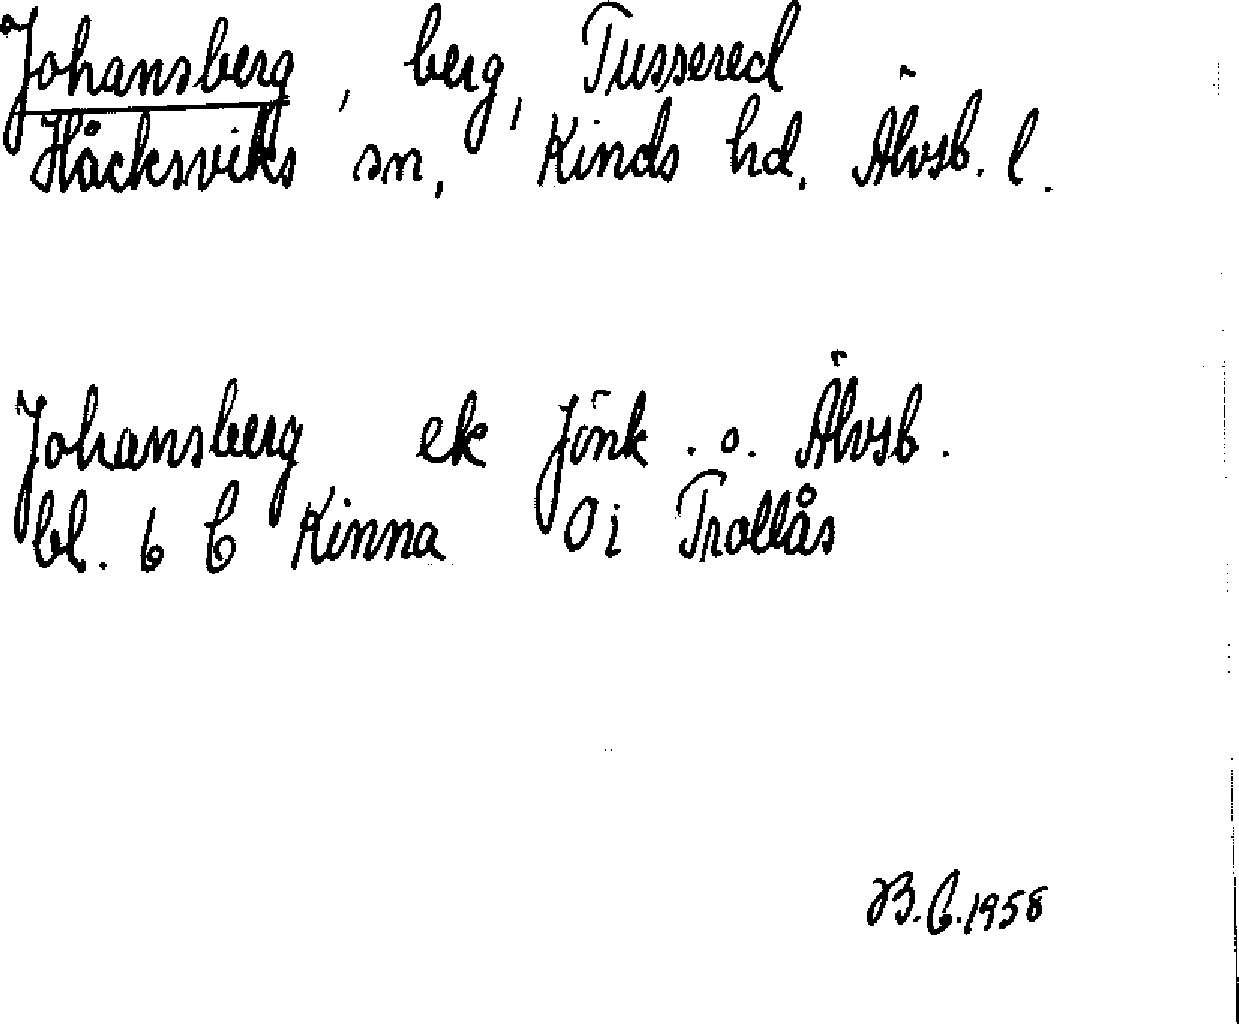 Johansberg, berg, Tussered
Håcksviks sn, Kinds hd. Älvsb. l.
Johansberg ek Jönk. o. Älvsb.
bl. 6 C Kinna Oi Trollås
B.C. 1958